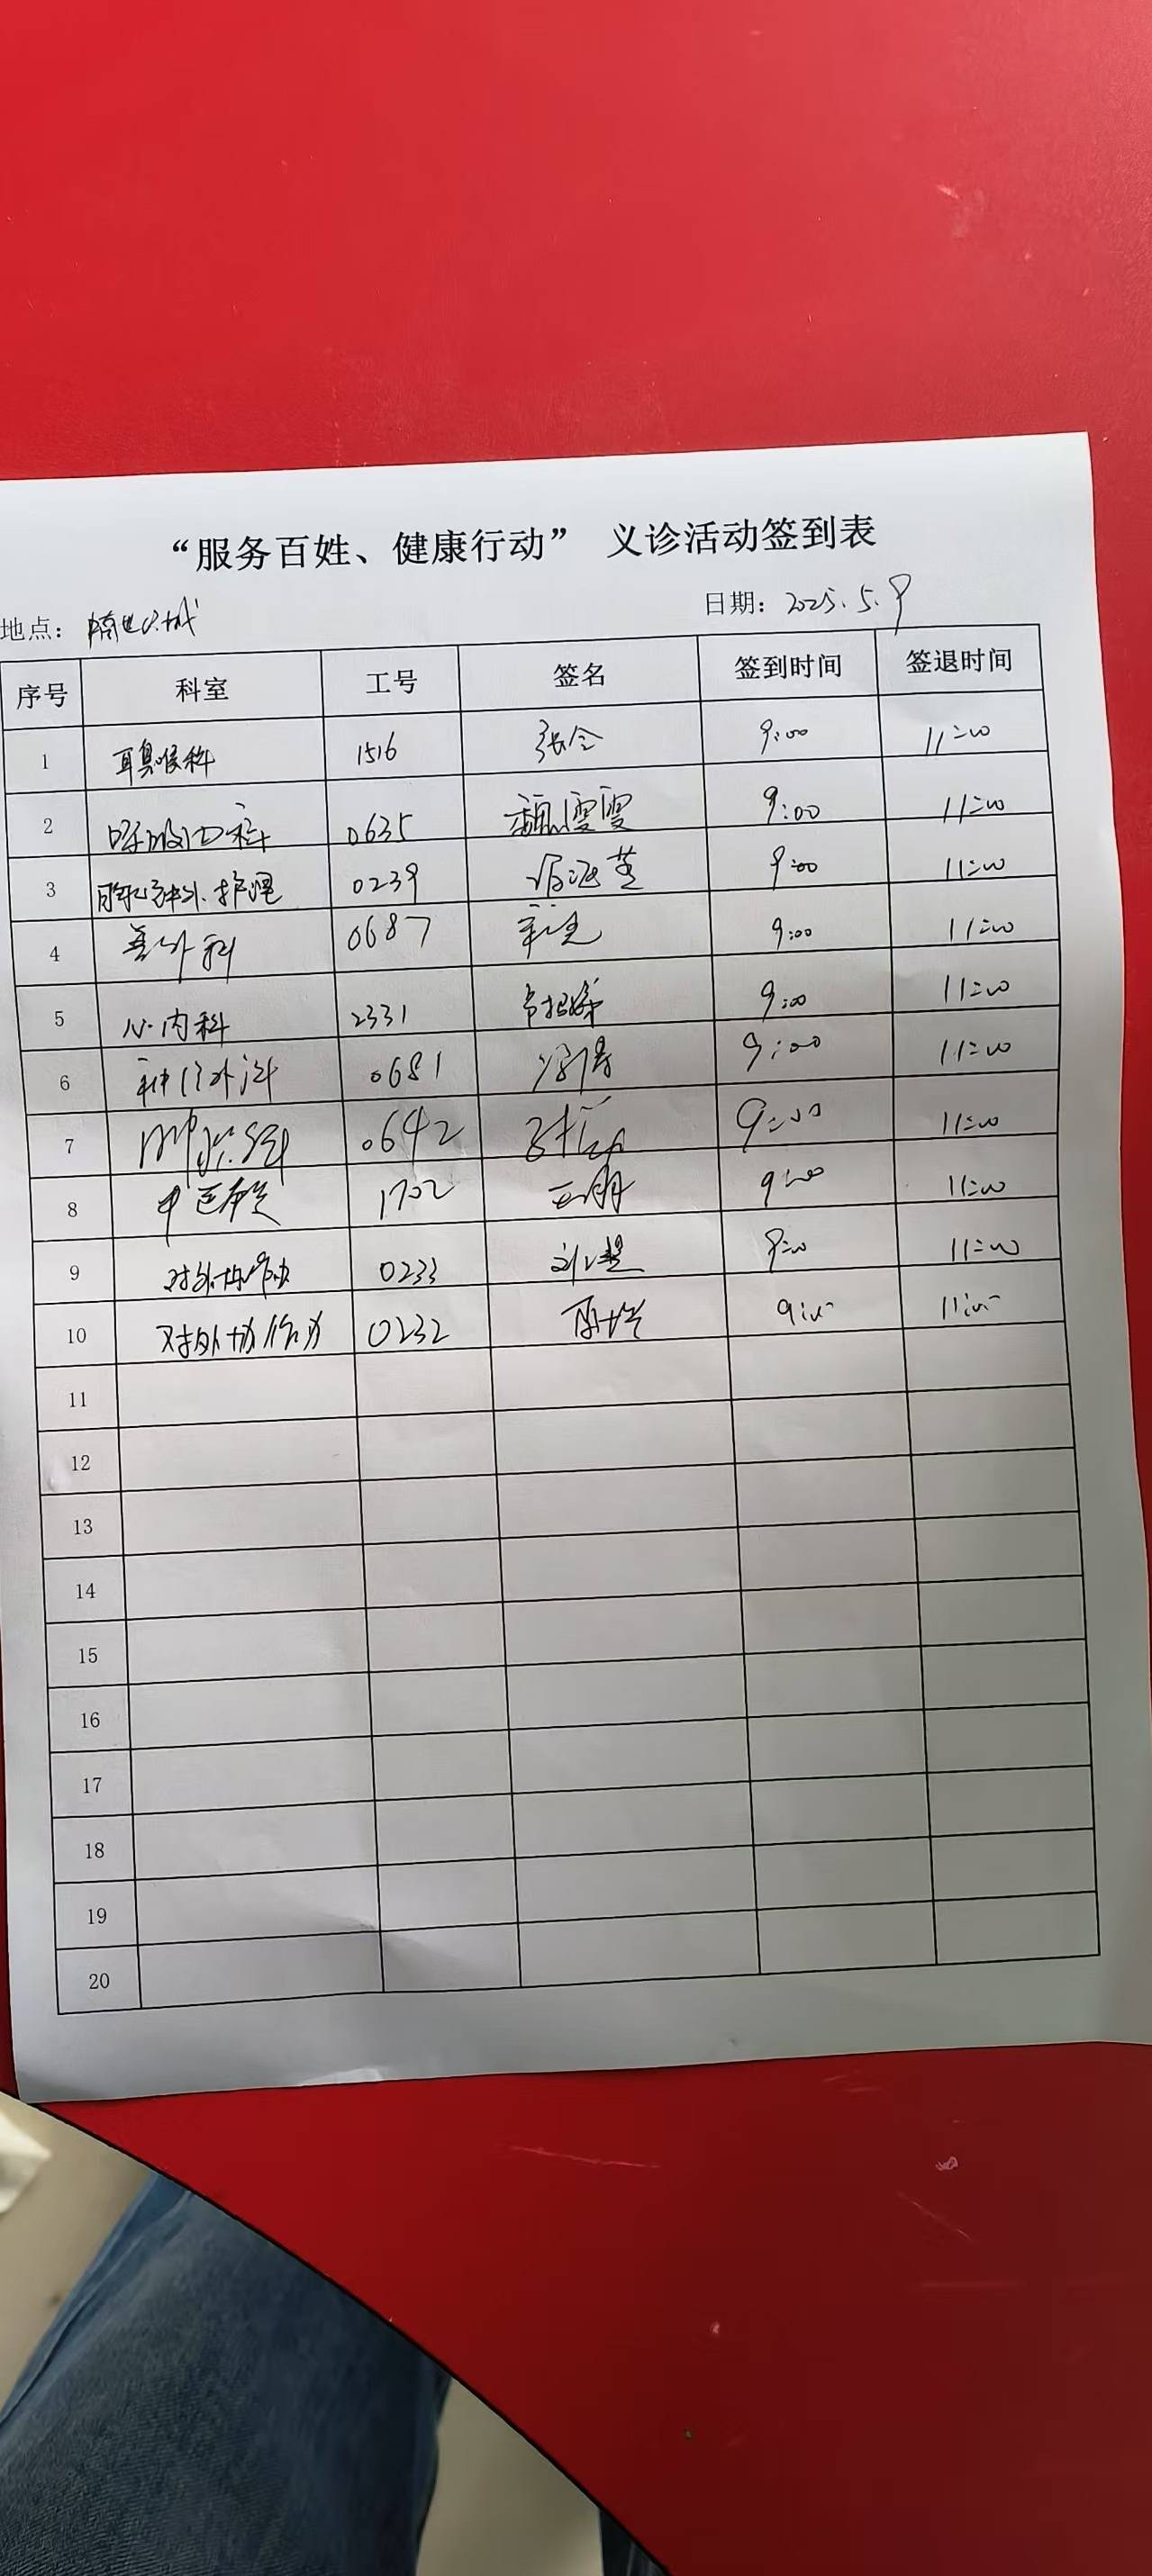 “服务百姓、健康行动” 义诊活动签到表
地点： 日期：2025.5.9
序号 科室 工号 签名 签到时间 签退时间
1 耳鼻喉科 1516 张会 9:00 11:00
2 呼吸内科 0635 魏雯雯 9:00 11:00
3 护理 0239 9:00 11:00
4 普外科 0687 9:00 11:00
5 心内科 2331 9:00 11:00
6 神经外科 0681 9:00 11:00
7 0642 9:00 11:00
8 中医 1702 王朋 9:00 11:00
9 对外协作办 0233 刘楚 9:00 11:00
10 对外协作办 0232 9:00 11:00
11
12
13
14
15
16
17
18
19
20